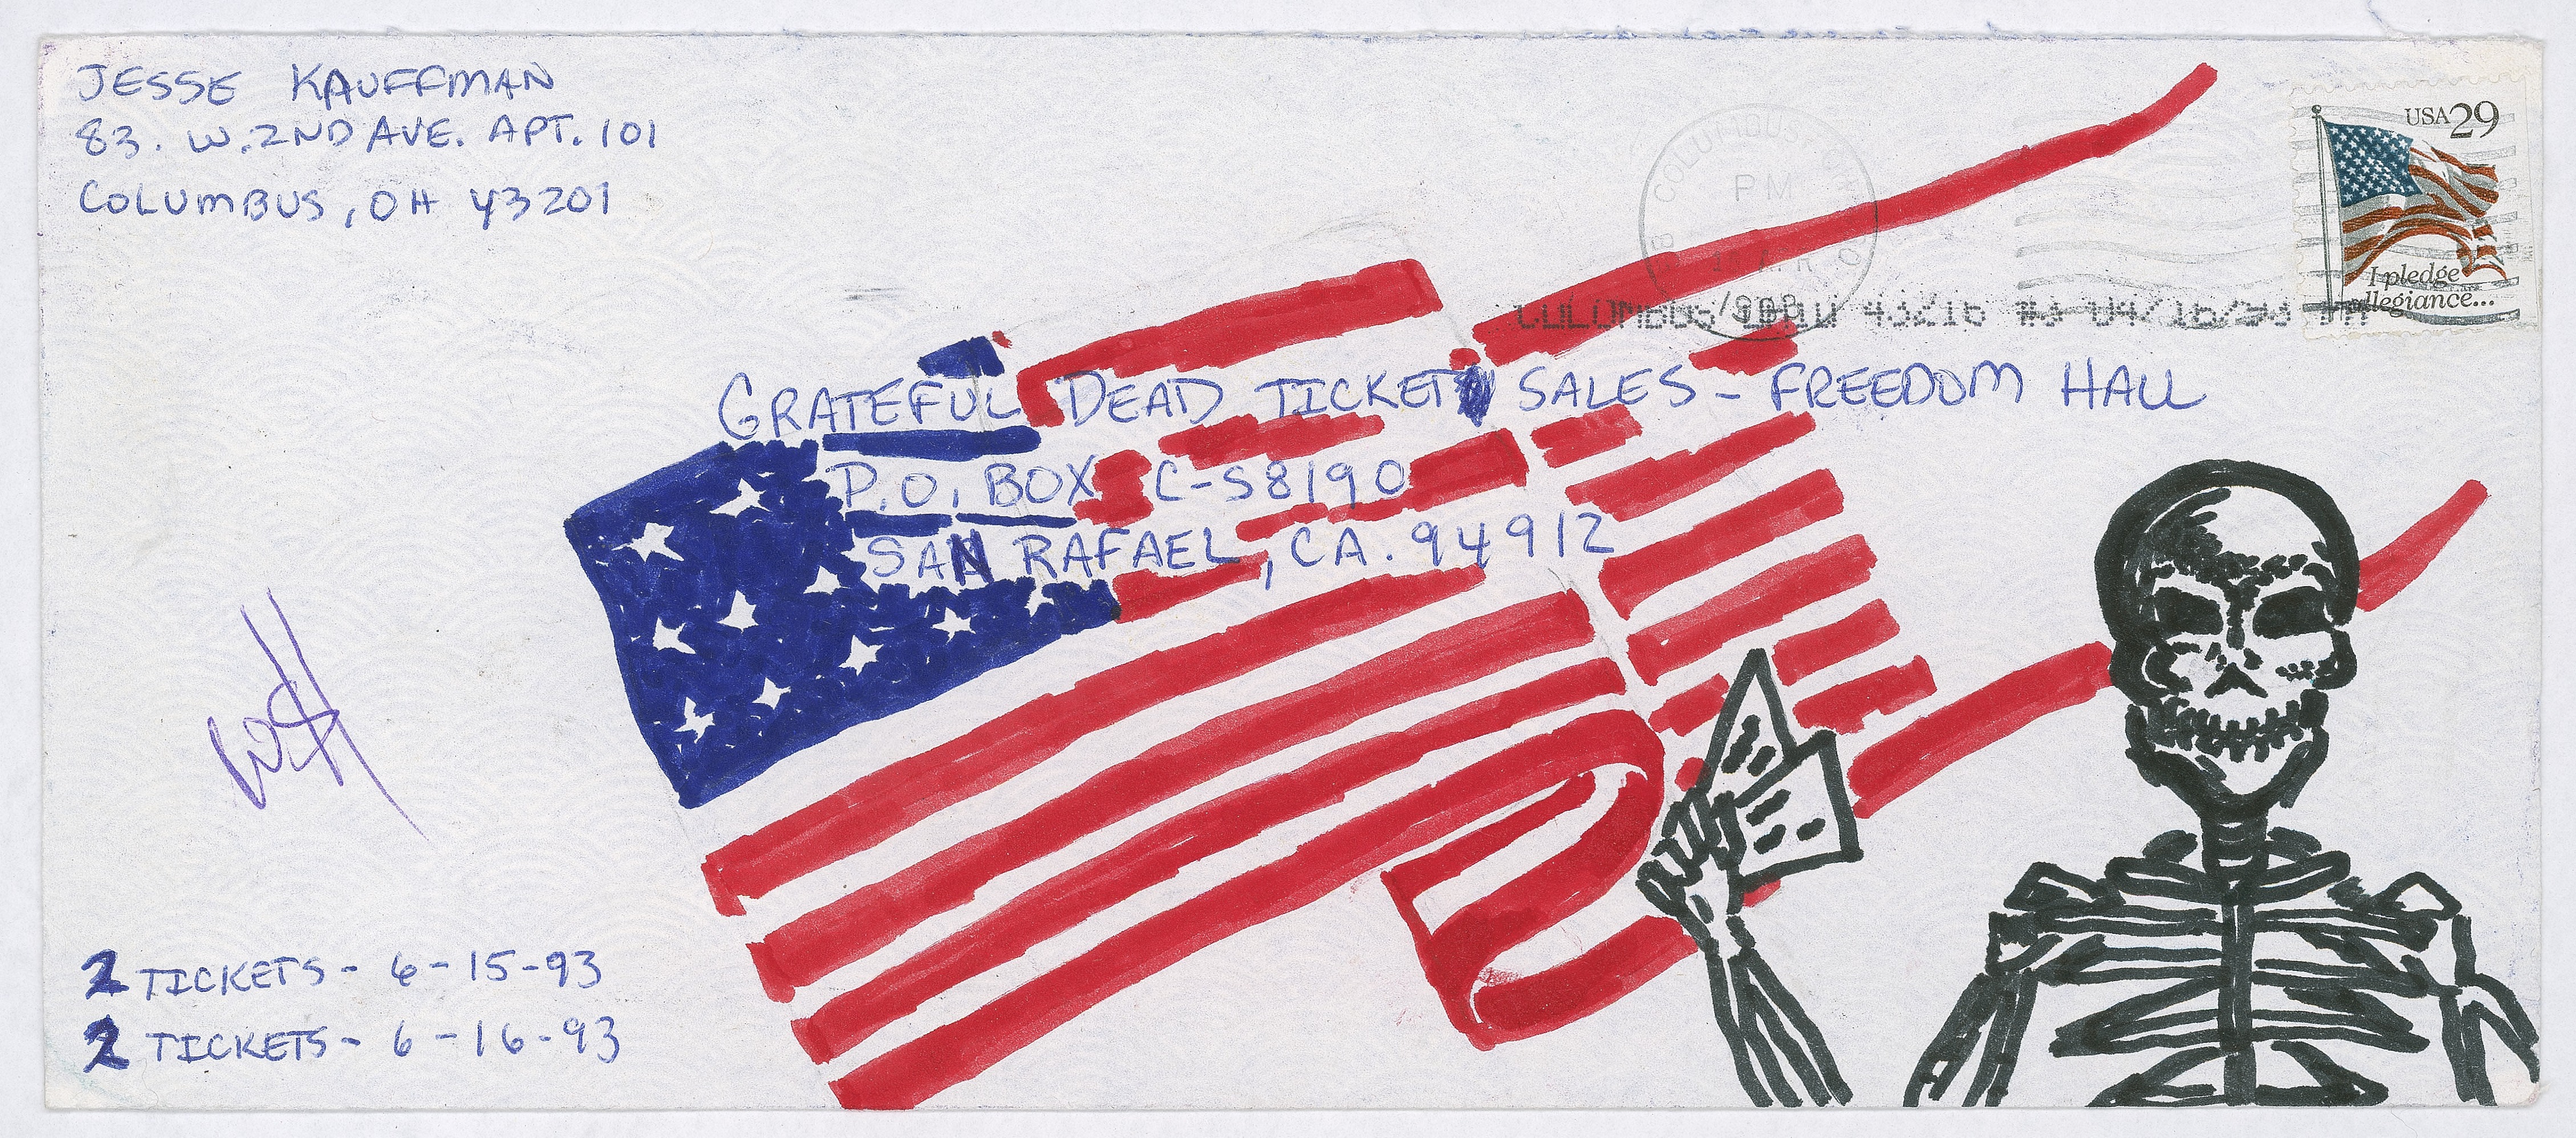 JESSE KAUFFMAN
83. W. 2ND AVE. APT. 101
COLUMBUS, OH 43201
USA 29
I pledge
allegiance...
PM
GRATEFUL DEAD TICKET SALES - FREEDOM HALL
P.O. BOX C-S8190
SAN RAFAEL, CA. 94912
2 TICKETS - 6-15-93
2 TICKETS - 6-16-93